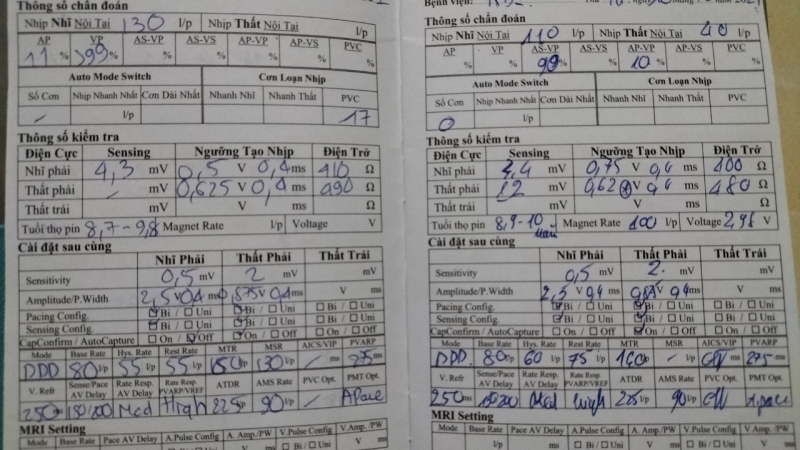 Thông số chẩn đoán
Nhịp Nhĩ Nội Tại 130 l/p Nhịp Thất Nội Tại l/p
AP VP AS-VP AS-VS AP-VP AP-VS PVC
11 % >99 % % % % % %
Auto Mode Switch Cơn Loạn Nhịp
Số Cơn Nhịp Nhanh Nhất Cơn Dài Nhất Nhanh Nhĩ Nhanh Thất PVC
/ l/p 17
Thông số kiểm tra
Điện Cực Sensing Ngưỡng Tạo Nhịp Điện Trở
Nhĩ phải 4,3 mV 0,5 V 0,4 ms 410 Ω
Thất phải / mV 0,625 V 0,4 ms 490 Ω
Thất trái mV V ms Ω
Tuổi thọ pin 8,7 - 9,8 Magnet Rate l/p Voltage V
Cài đặt sau cùng
Nhĩ Phải Thất Phải Thất Trái
Sensitivity 0,5 mV 2 mV mV
Amplitude/P.Width 2,5 V 0,4 ms 0,875 V 0,4 ms V ms
Pacing Config. Bi / Uni Bi / Uni Bi / Uni
Sensing Config. Bi / Uni Bi / Uni Bi / Uni
CapConfirm / AutoCapture On / Off On / Off On / Off
Mode Base Rate Hys. Rate Rest Rate MTR MSR AICS/VIP PVARP
DDD 80 l/p 55 l/p 55 l/p 150 l/p 130 l/p / ms 275 ms
V. Refr Sense/Pace AV Delay Rate Resp. AV Delay Rate Resp. PVARP/VREF ATDR AMS Rate PVC Opt. PMT Opt.
250 ms 150/200 Med High 225 l/p 90 l/p / A Pace
MRI Setting
Mode Base Rate Pace AV Delay A.Pulse Config A. Amp./PW V.Pulse Config V.Amp. /PW
l/p ms Bi / Uni V ms Bi / Uni V ms
Bệnh viện:
Thông số chẩn đoán
Nhịp Nhĩ Nội Tại 110 l/p Nhịp Thất Nội Tại 40 l/p
AP VP AS-VP AS-VS AP-VP AP-VS PVC
% % 99 % % 10 % % %
Auto Mode Switch Cơn Loạn Nhịp
Số Cơn Nhịp Nhanh Nhất Cơn Dài Nhất Nhanh Nhĩ Nhanh Thất PVC
0 l/p
Thông số kiểm tra
Điện Cực Sensing Ngưỡng Tạo Nhịp Điện Trở
Nhĩ phải mV 0,75 V 0,4 ms 400 Ω
Thất phải 12 mV 0,62 V 0,4 ms 480 Ω
Thất trái mV V ms Ω
Tuổi thọ pin 8,9-10 năm Magnet Rate 100 l/p Voltage 2,98 V
Cài đặt sau cùng
Nhĩ Phải Thất Phải Thất Trái
Sensitivity 0,5 mV 2 mV mV
Amplitude/P.Width 2,5 V 0,4 ms 0,875 V 0,4 ms V ms
Pacing Config. Bi / Uni Bi / Uni Bi / Uni
Sensing Config. Bi / Uni Bi / Uni Bi / Uni
CapConfirm / AutoCapture On / Off On / Off On / Off
Mode Base Rate Hys. Rate Rest Rate MTR MSR AICS/VIP PVARP
DDD 80 l/p 60 l/p 75 l/p l/p / l/p Off ms 275 ms
V. Refr Sense/Pace AV Delay Rate Resp. AV Delay Rate Resp. PVARP/VREF ATDR AMS Rate PVC Opt. PMT Opt.
250 ms 150/200 Med High 225 l/p 90 l/p Off A pace
MRI Setting
Mode Base Rate Pace AV Delay A.Pulse Config A. Amp./PW V.Pulse Config V.Amp. /PW
l/p ms Bi / Uni V ms Bi / Uni V ms